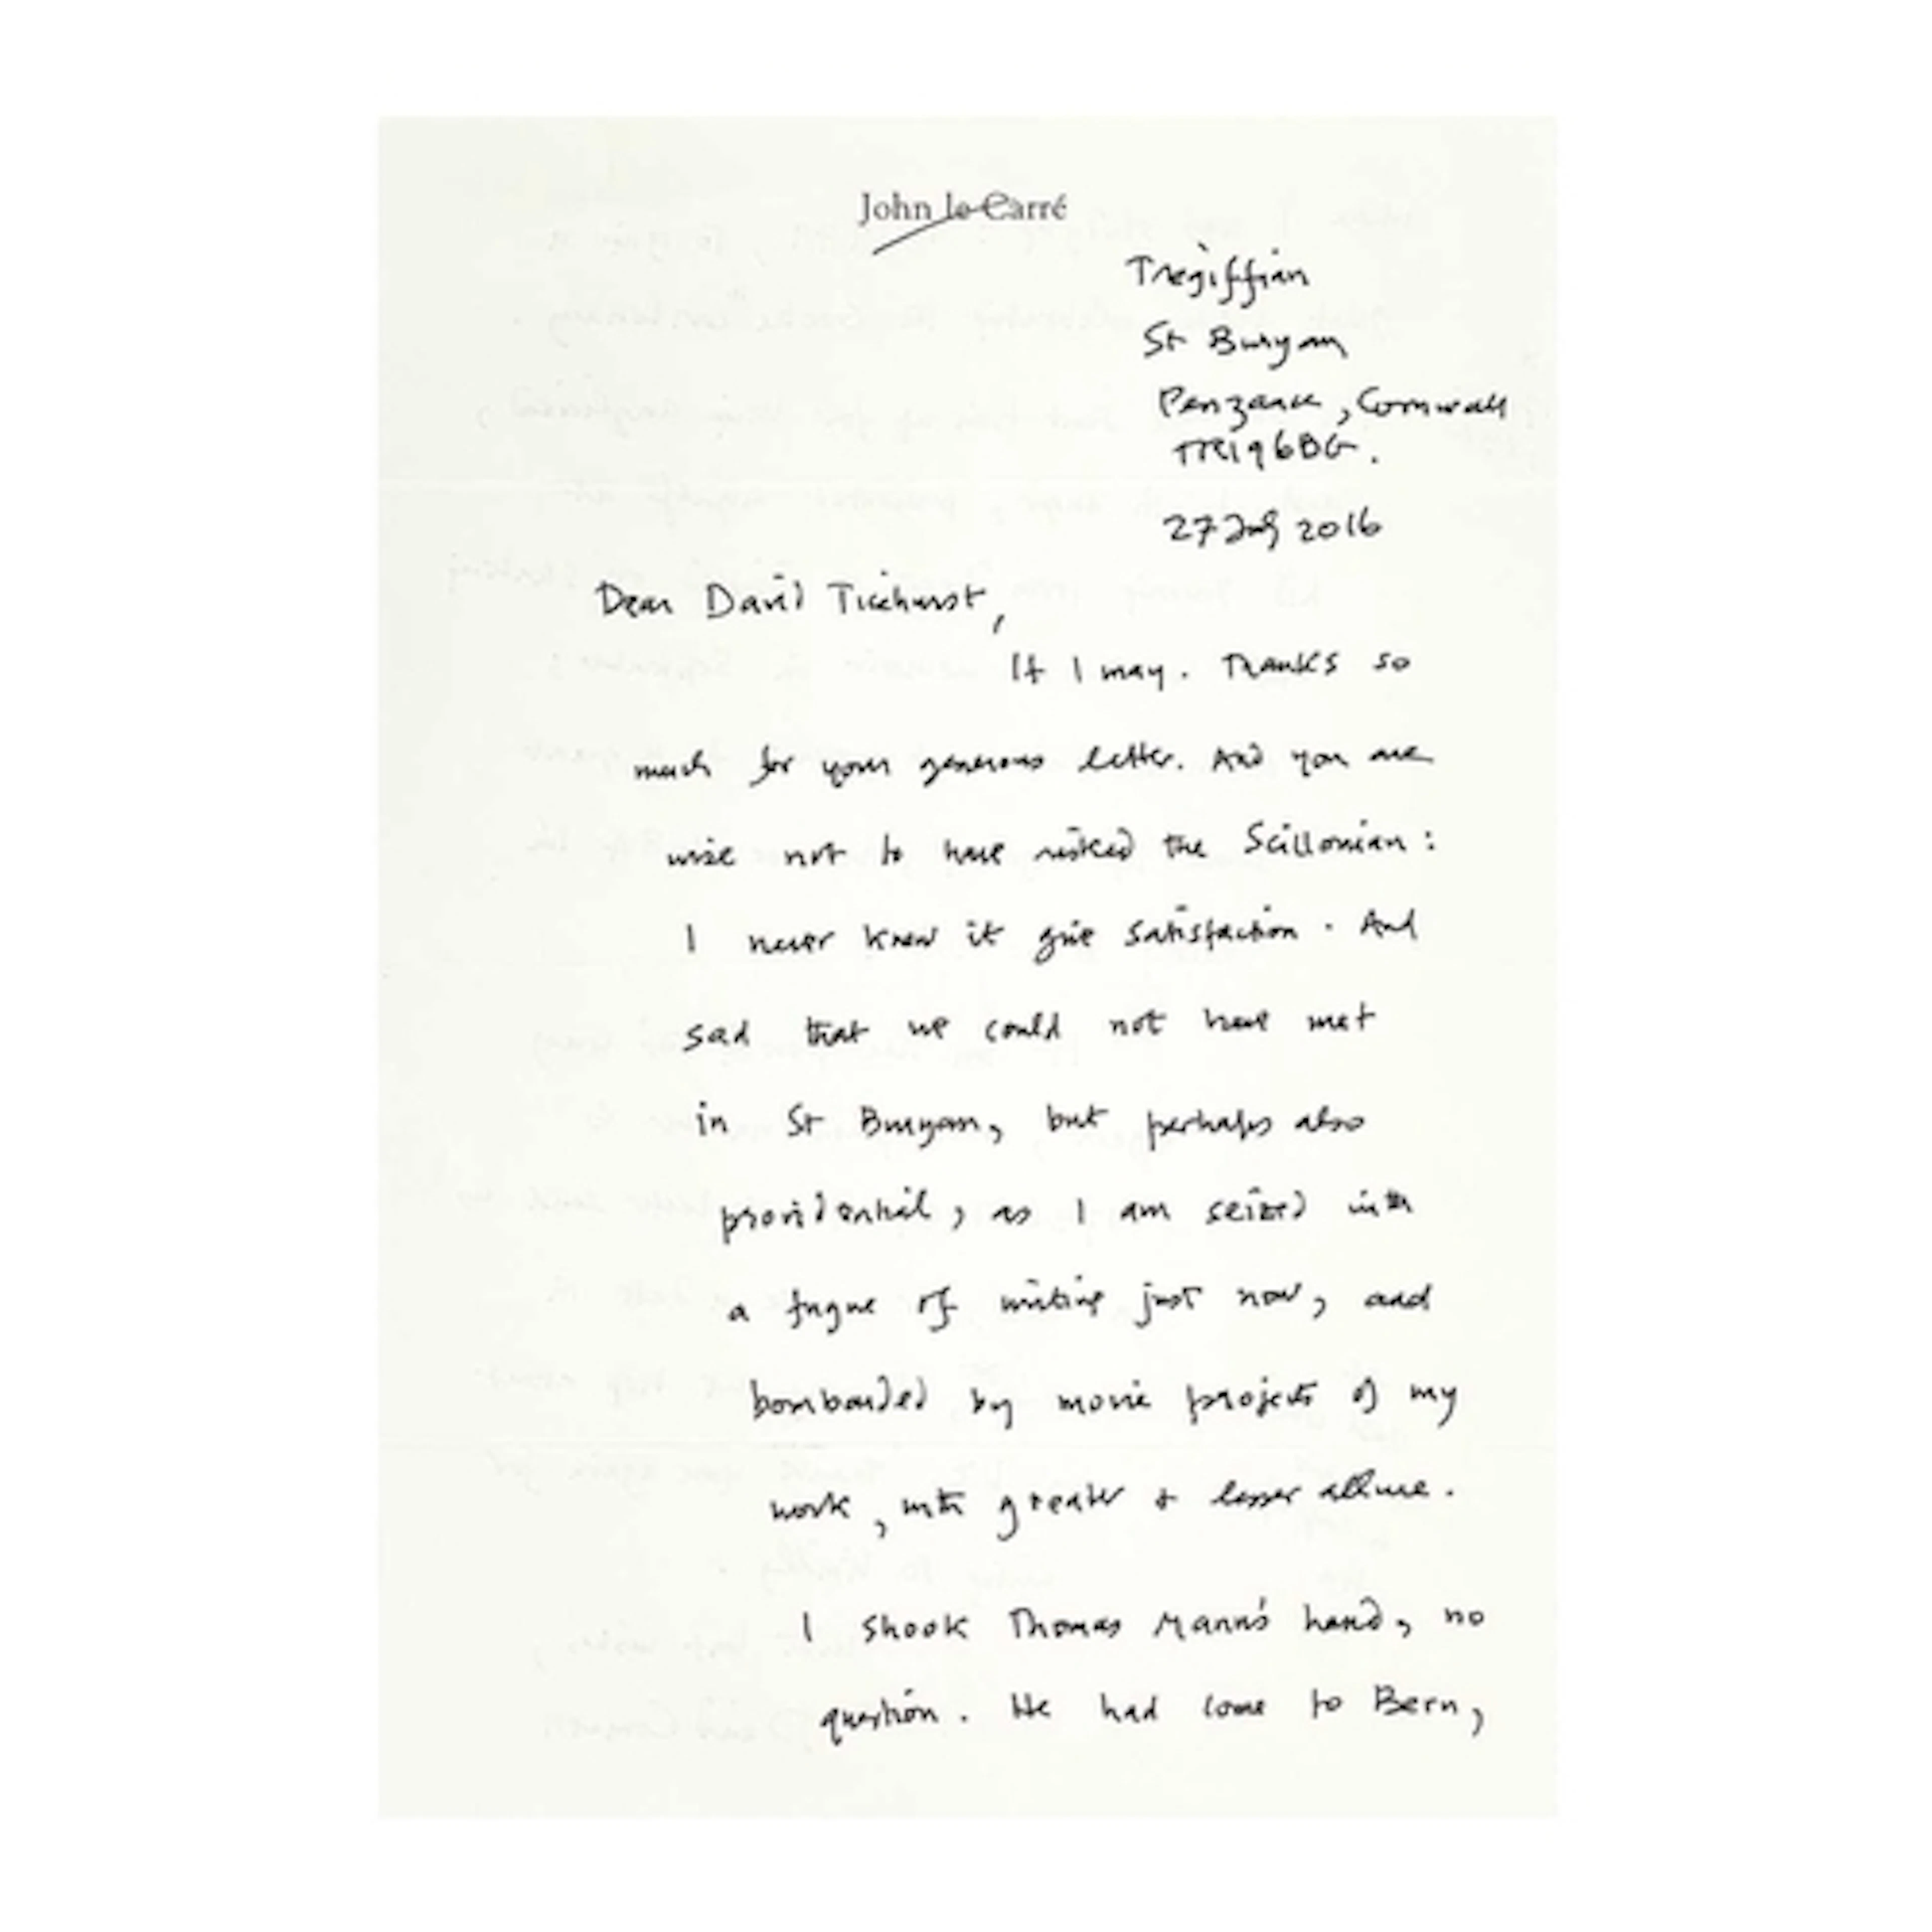 John le Carré
Tregiffian
St Buryan
Penzance, Cornwall
TR196BG.
27 July 2016
Dear David Ticehurst,
If I may. Thanks so
much for your generous letter. And you are
wise not to have risked the Scillonian:
I never knew it give satisfaction. And
sad that we could not have met
in St Buryan, but perhaps also
providential, as I am seized with
a fugue of writing just now, and
bombarded by movie projects of my
work, with greater & lesser allure.
I shook Thomas Mann's hand, no
question. He had come to Bern,